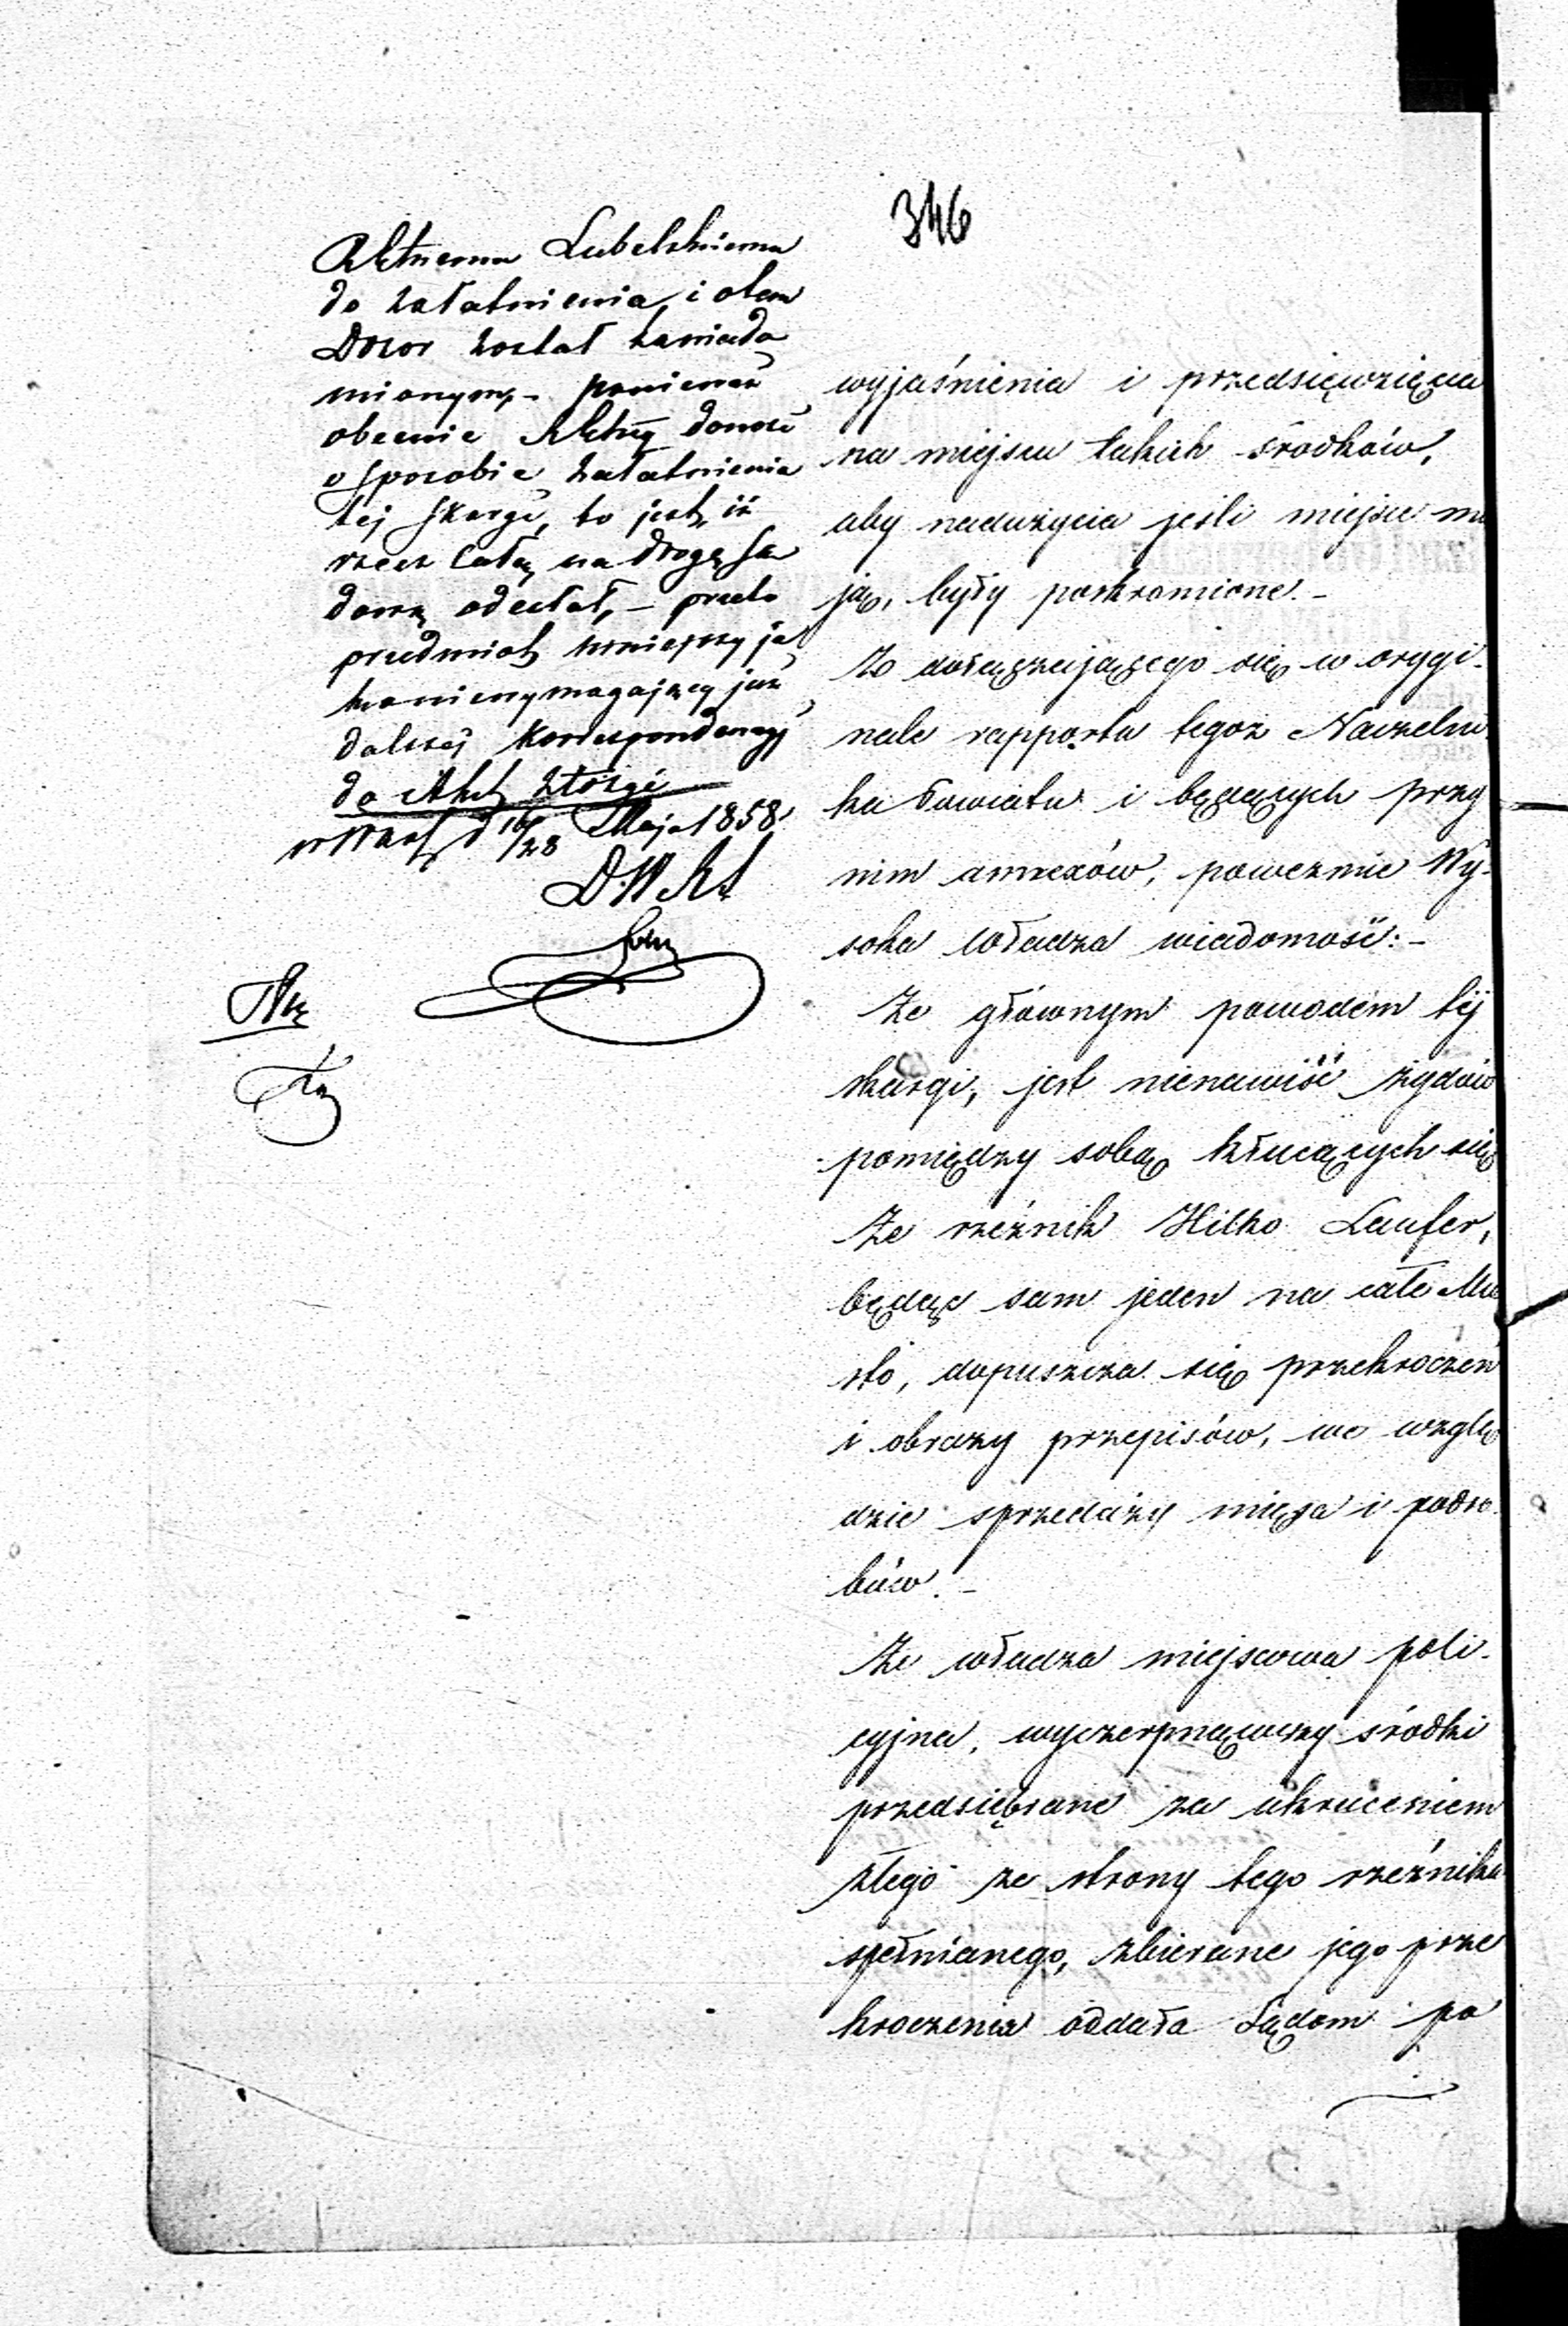 346
Lubelskiemu
do załatwienia, i otem
Dozor został zawiado
mionym, – ponieważ
obecnie donosi
o sposobie załatwienia
tej skargi, to jest, iż
rzecz całą na drogę są
dową odesłał, – przeto
przedmiot niniejszy ja
ko niewymagający już
dalszéj korrespondencyj
do Akt złożyć
d 16/28 Maja 1858
wyjaśnienia i przedsięwzięcia
na miejscu takich środków,
aby nadużycia jeśli miejsce ma
ją, były poskromione. –
Z dołączającego się w orygi-
nale rapportu tegoż Naczelni
ka Powiatu i będących przy
nim annexów, poweźmie Wy-
soka Władza wiadomość: –
Że głównym powodem téj
skargi, jest nienawiść żydów
pomiędzy sobą kłucących się
Że rzeźnik Hilko Laufer,
będąc sam jeden na całe Mia
sto, dopuszcza się przekroczeń
i obrazy przepisów, we wzglę
dzie sprzedaży mięsa i podro
bów. –
Że władza miejscowa poli-
cyjna, wyczerpnąwszy środki
przedsiębrane za ukruceniem
złego ze strony tego rzeźnika
spełnianego, zbierane jego prze
kroczenia oddała Sądom po